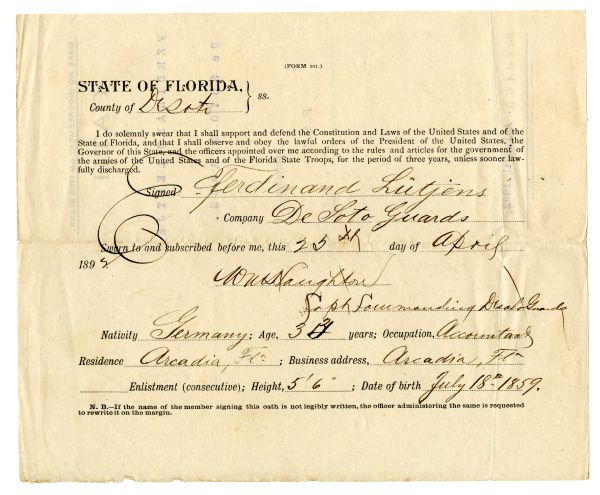 (FORM 201.)
STATE OF FLORIDA,
County of De Soto } ss.
I do solemnly swear that I shall support and defend the Constitution and Laws of the United States and of the
State of Florida, and that I shall observe and obey the lawful orders of the President of the United States, the
Governor of this State, and the officers appointed over me according to the rules and articles for the government of
the armies of the United States and of the Florida State Troops, for the period of three years, unless sooner law-
fully discharged.
Signed Ferdinand Lütjens
Company De Soto Guards
Sworn to and subscribed before me, this 25th day of April
189
Wm Haughton
Capt Commanding Desoto Guards
Nativity Germany; Age, 3 years; Occupation, Accountant
Residence Arcadia, Fla ; Business address, Arcadia, Fla
Enlistment (consecutive); Height, 5'6" ; Date of birth July 18th 1859.
N. B.—If the name of the member signing this oath is not legibly written, the officer administering the same is requested
to rewrite it on the margin.